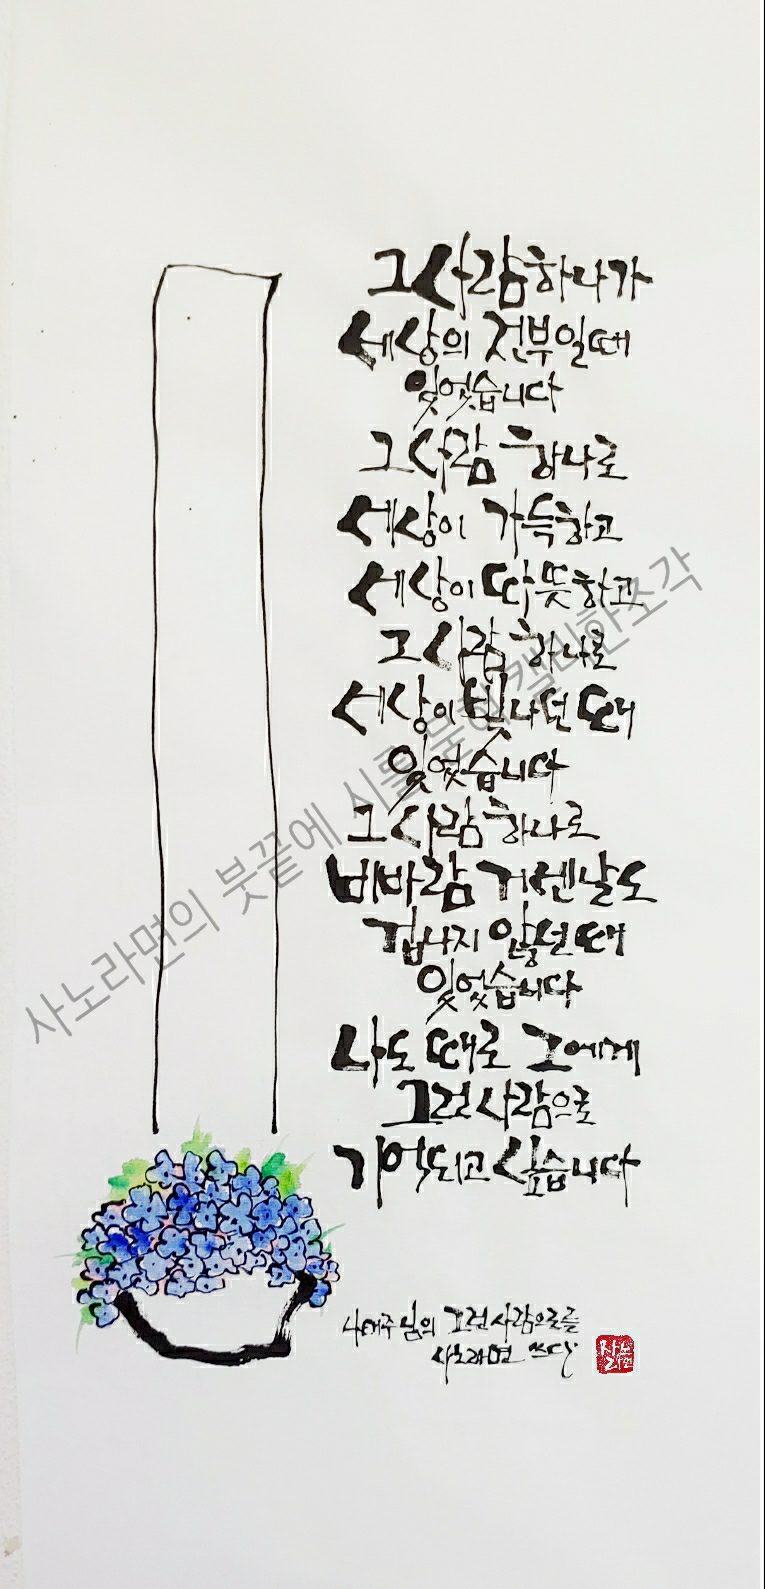 그 사람 하나가
세상의 전부일 때
있었습니다
그 사람 하나로
세상이 가득하고
세상이 따뜻하고
그 사람 하나로
세상이 빛나던 때
있었습니다
그 사람 하나로
비바람 거센 날도
겁나지 않던 때
있었습니다
나도 때로 그에게
그런 사람으로
기억되고 싶습니다
나태주님의 그런 사람으로를
사노라면 쓰다
사노라면
사노라면의 붓끝에 시를 묻혀 캘리한조각